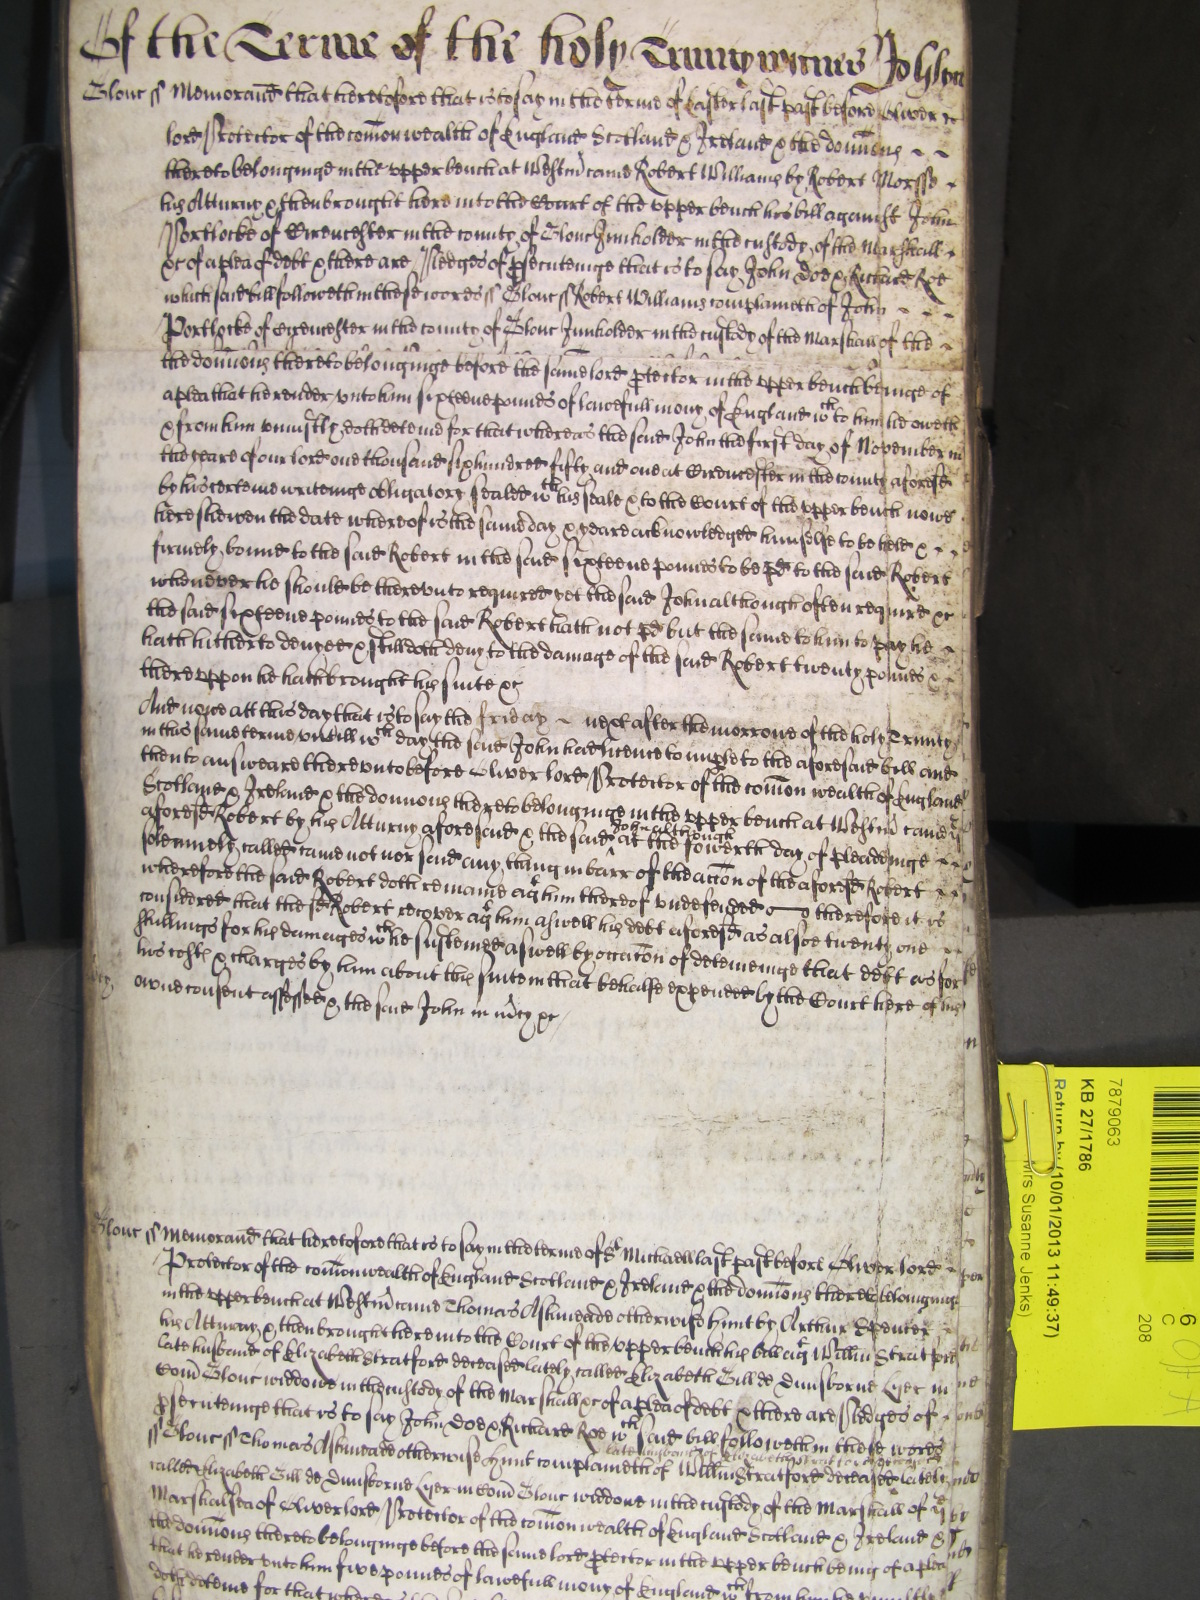 Of the Terme of the holy Trinity witnes John
Glouc ss Memorand that heretofore that is to say in the terme of Easter last past before Oliver
lord Protector of the comonwealth of England Scotland & Ireland & the dominions
thereto belonginge in the upper bench at Westm came Robert Williams by Robert Morsse
his Atturny & then brought here into the Court of the upper bench his bill against John
Portlocke of Cirencester in the county of Glouc Innholder in the custody of the Marshall
&c of a plea of debt & there are Pledges of psecuteinge that is to say John Doe & Richard Roe
which said bill followeth in these words ss Glouc ss Robert Williams complaineth of John
Portlocke of Cirencester in the county of Glouc Innholder in the custody of the Marshall of the
the dominions thereto belonginge before the same lord ptector in the upper bench beinge of
a plea that he render unto him sixteene pounds of lawfull mony of England wch to him he oweth
& from him uniustly doth deteine for that whereas the said John the first day of November in
the yeare of our lord one thousand six hundred fifty and one at Cirencester in the county aforesd
by his certeine writeinge obligatory sealed wth his seale & to the Court of the upper bench nowe
here shewen the date whereof is the same day & yeare acknowledged himselfe to be held &
firmely bound to the said Robert in the said sixteene pounds to be pd to the said Robert
whensoever he should be thereunto required yet the said John although often required &c
the said sixteene pounds to the said Robert hath not pd but the same to him to pay he
hath hitherto denyed & still doth deny to the damage of the said Robert twenty pounds &
thereuppon he hath brought his suite &c
And nowe att this day that is to say the friday next after the morrowe of the holy Trinity
in this same terme untill wch day the said John had licence to imple to the aforesaid bill and
then to answeare thereunto before Oliver lord Protector of the comon wealth of England
Scotland & Ireland & the dominions thereto belonginge in the upper bench at Westm came
aforesd Robert by his Atturny aforesaid & the said John although at the fowerth day of pleadeinge
solemnely called came not nor said any thing in barr of the accon of the aforesd Robert
wherefore the said Robert doth remaine agt him thereof undefended therefore it is
considered that the sd Robert recover agt him aswell his debt aforesd as alsoe twenty one
shillings for his damages wch he susteined aswell by occacon of deteineinge that debt as for
his costs & charges by him about this suite in that behalfe expended by the Court here of his
owne consent assessed & the said John in mcy &c
Glouc ss Memorand that heretofore that is to say in the terme of St Michaell last past before Oliver lord
Protector of the comonwealth of England Scotland & Ireland & the dominions thereto belonginge
in the upper bench at Westm came Thomas Astmeade otherwise Hunt by Arthur Spencer
his Atturny & then brought here into the Court of the upper bench his bill agt Willm Stratford
late husband of Elizabeth Stratford deceased lately called Elizabeth Gill de Dunsborne Lyer in
Com Glouc widdowe in the custody of the Marshall &c of a plea of debt & there are Pledges of
psecuteinge that is to say John Doe & Richard Roe wch said bill followeth in these words
ss Glouc ss Thomas Astmeade otherwise Hunt complaineth of Willm Stratford late husband of Elizabeth Stratford deceased lately
called Elizabeth Gill de Dunsborne Lyer in Com Glouc widdowe in the custody of the Marshall of ye
Marshalsea of Oliver lord Protector of the comon wealth of England Scotland & Ireland &
the dominions thereto belonginge before the same lord ptector in the upper bench being of a plea
that he render unto him five pounds of lawfull mony of England wch from him he uniustly
doth deteine for that whereas
7879063
KB 27/1786
Return by (10/01/2013 11:49:37)
Mrs Susanne Jenks)
6
C
208